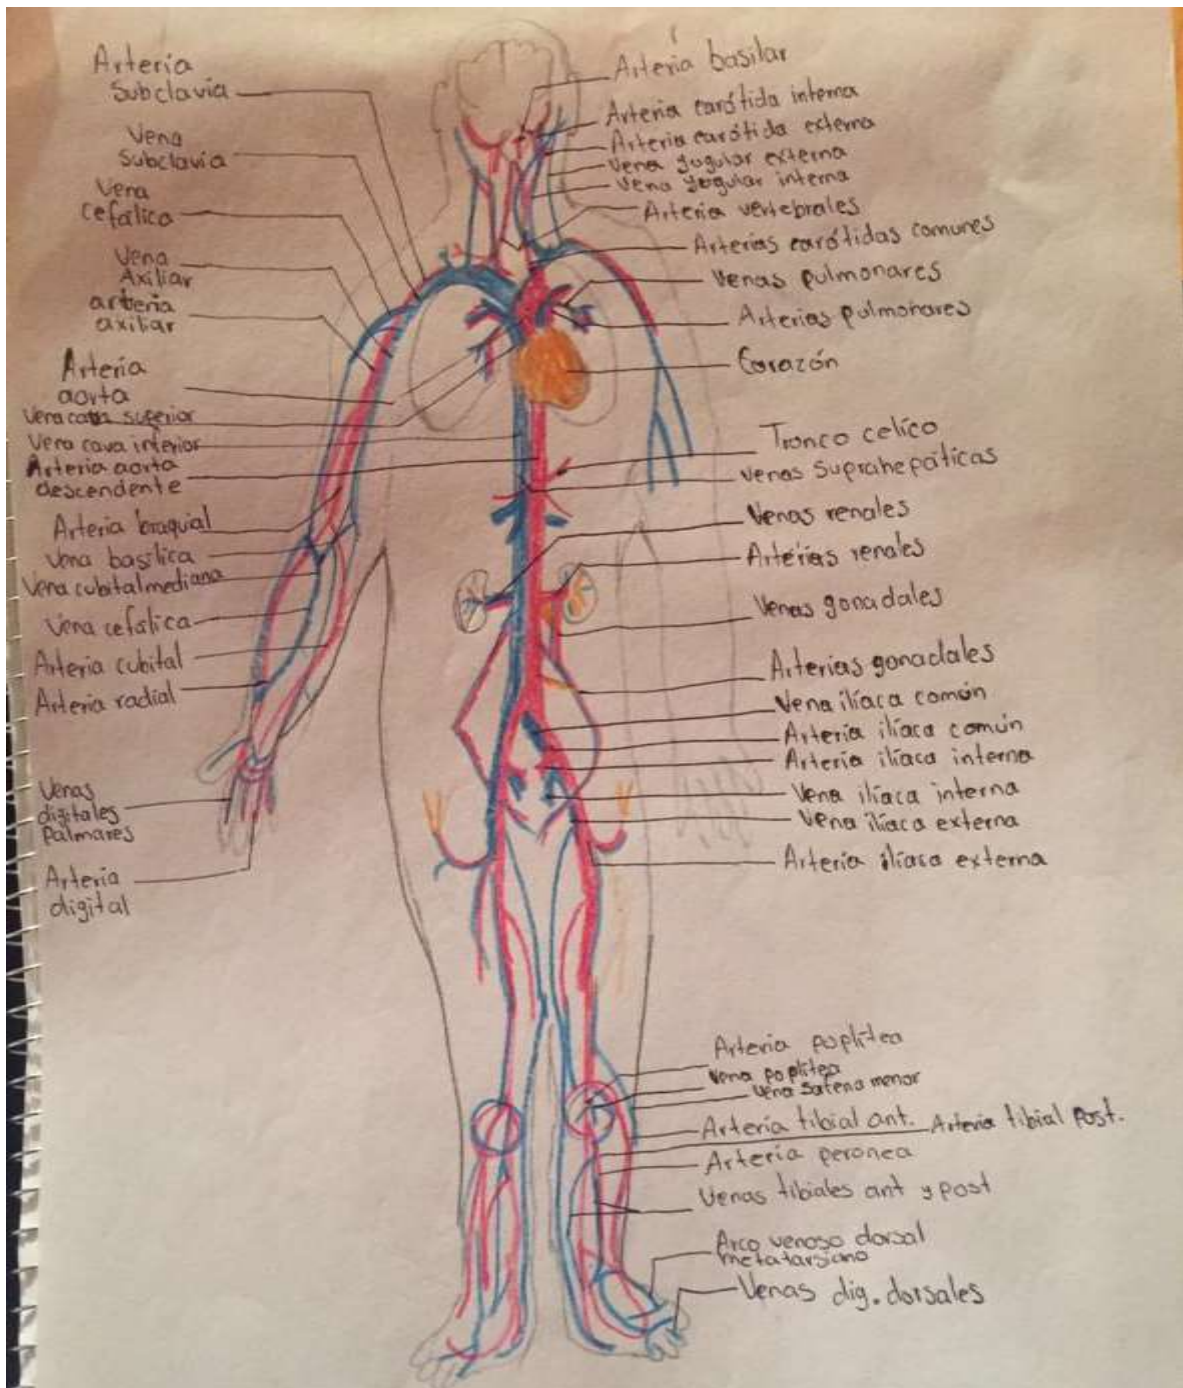 Arteria
Subclavia
Vena
Subclavia
Vena
cefálica
Vena
Axiliar
arteria
axiliar
Arteria
aorta
Vena cava superior
Vena cava inferior
Arteria aorta
descendente
Arteria braquial
Vena basílica
Vena cubital mediana
Vena cefálica
Arteria cubital
Arteria radial
Venas
digitales
Palmares
Arteria
digital
Arteria basilar
Arteria carótida interna
Arteria carótida externa
Vena yugular externa
Vena yugular interna
Arteria vertebrales
Arterias carótidas comunes
Venas pulmonares
Arterias pulmonares
Corazón
Tronco celíco
Venas Suprahepáticas
Venas renales
Arterias renales
Venas gonadales
Arterias gonadales
Vena ilíaca común
Arteria ilíaca común
Arteria ilíaca interna
Vena ilíaca interna
Vena ilíaca externa
Arteria ilíaca externa
Arteria poplítea
Vena poplítea
Vena safena menor
Arteria tibial ant. Arteria tibial Post.
Arteria peronea
Venas tibiales ant y post
Arco venoso dorsal
metatarsiano
Venas dig. dorsales